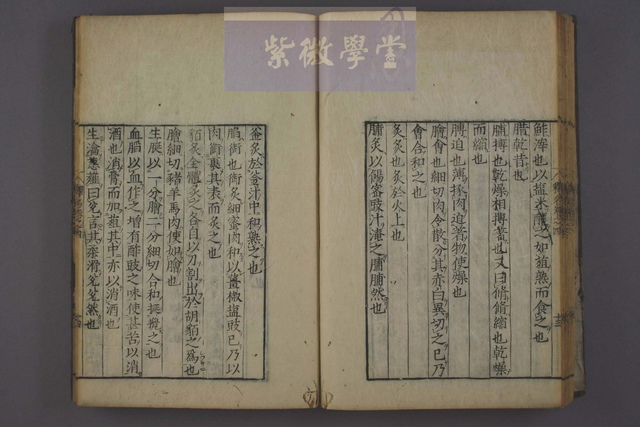 紫微學堂
鮓滓也以鹽米釀之如菹熟而食之也
腊乾昔也
脯搏也乾燥相搏著也又曰脩脩縮也乾燥
而縮也
膊迫也薄椓肉迫著物使燥也
膾會也細切肉令散分其赤白異切之已乃
會合和之也
炙炙也炙於火上也
脯炙以餳蜜豉汁淹之脯脯然也
釜炙於釜汁中和熟之也
脂銜也銜炙細蜜肉和以薑椒鹽豉已乃以
肉銜裹其表而炙之也
貊炙全體炙之各自以刀割出於胡貊之為也
膾細切豬羊馬肉使如膾也
生脠以一分膾二分細切合和挻攪之也
血脂以血作之增有酢豉之味使甚苦以消
酒也消膏而加菹其中亦以消酒也
生瀹蔥薤曰兌言其柔滑兌兌然也